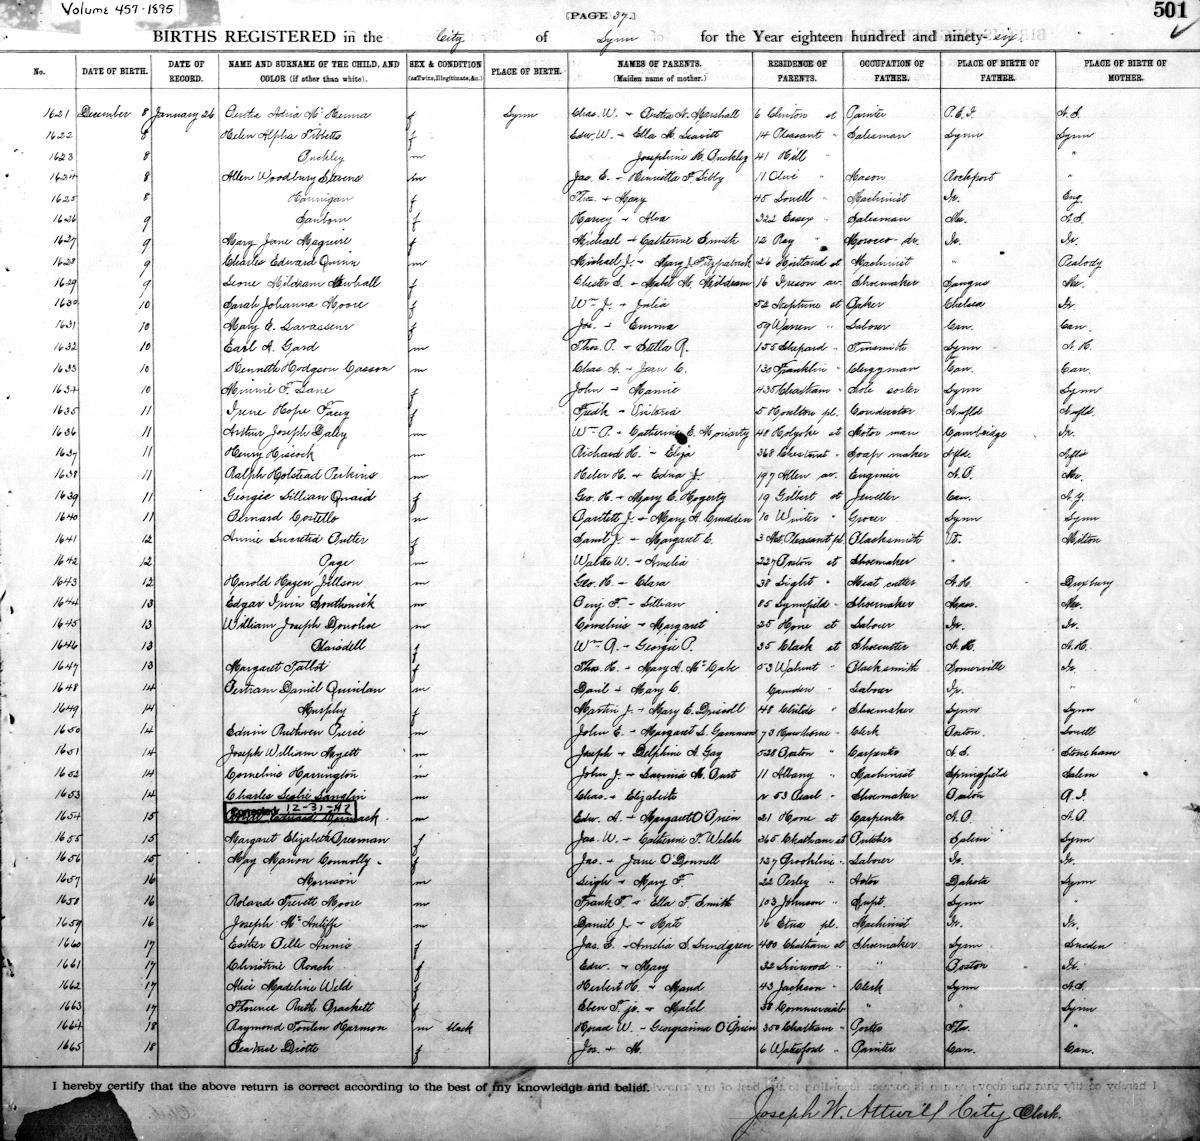 Volume 457-1895
[PAGE 37.]
501
BIRTHS REGISTERED in the City of Lynn for the Year eighteen hundred and ninety-six
No. DATE OF BIRTH. DATE OF RECORD. NAME AND SURNAME OF THE CHILD, AND COLOR (if other than white). SEX & CONDITION (as Twins, Illegitimate, &c.) PLACE OF BIRTH. NAMES OF PARENTS. (Maiden name of mother.) RESIDENCE OF PARENTS. OCCUPATION OF FATHER. PLACE OF BIRTH OF FATHER. PLACE OF BIRTH OF MOTHER.
1621 December 8 January 26 f Lynn Chas. W. + Marshall 6 Clinton st Painter P.E.I. N.S.
1622 8 Helen Alpha Tibbetts f Edw. W. + Ella M. Leavitt 14 Pleasant " Salesman Lynn Lynn
1623 8 Buckley m Josephine H. Buckley 41 Hill " "
1624 8 Allen Woodbury Stevens m Jas. E. + Henrietta F. Libby 11 Olive " Mason Rockport "
1625 8 Hannigan f Thos. + Mary 45 Lowell " Machinist Ir. Eng.
1626 9 Sanborn f Harvey + Alva 322 Essex " Salesman Me. N.S.
1627 9 Mary Jane Maguire f Michael + Catherine Smith 12 Ray " Morocco dr. Ir. Ir.
1628 9 Charles Edward Quinn m Michael J. + Mary J. Fitzpatrick 26 st Machinist " Peabody
1629 9 Leone Mildram Newhall f Chester S. + Mabel M. Mildram 16 Ireson av. Shoemaker Saugus Me.
1630 10 Sarah Johanna Moore f Wm. J. + Julia 52 Neptune st Baker Chelsea Ir.
1631 10 Mary E. Lavasseur f Jos. + Emma 59 Warren " Laborer Can. Can.
1632 10 Earl A. Gard m Thos. P. + Stella R. 155 Shepard " Tinsmith Lynn N.H.
1633 10 Kenneth Hodgson Casson m Chas. A. + Jean C. 130 Franklin " Clergyman Can. Can.
1634 10 Minnie F. Lane f John + Mamie 435 Chatham " Sole sorter Lynn Lynn
1635 11 Irene Hope Facey f Fredk + Victoria 5 Houlton pl. Conductor N.wfld. N.wfld.
1636 11 Arthur Joseph Daley m Wm. P. + Catherine E. Moriarty 40 Holyoke st Motor man Cambridge Ir.
1637 11 Henry Hiscock m Richard H. + Eliza 368 Chestnut " Soap maker Nfld. Nfld.
1638 11 Ralph Holstead Perkins m Helen H. + Edna J. 197 Allen av. Engineer N.B. Me.
1639 11 Georgie Lillian Quaid f Geo. H. + Mary E. Hogerty 19 Gilbert st Jeweller Can. N.Y.
1640 11 Bernard Costello m Bartlett J. + Mary A. Crudden 10 Winter " Grocer Lynn Lynn
1641 12 Annie Lucretia f Saml J. + Margaret E. 3 Mt. Pleasant pl Blacksmith Vt. Milton
1642 12 Page m Walter W. + Amelia 227 Boston st Shoemaker "
1643 12 Harold Hazen Jillson m Geo. H. + Clara 38 Light " Meat cutter N.H. Duxbury
1644 13 Edgar Irvin Southwick m Benj. F. + Lillian 85 Lynnfield " Shoemaker Mass. Me.
1645 13 William Joseph Donohoe m Cornelius + Margaret 25 Hone st Laborer Ir. Ir.
1646 13 Blaisdell f Wm. R. + Georgie P. 35 Clark st Shoecutter N.H. N.H.
1647 13 Margaret Talbot f Thos. H. + Mary A. McCabe 53 Walnut " Blacksmith Somerville Ir.
1648 14 Bertram Daniel Quinlan m Danl + Mary C. Camden " Laborer Ir. "
1649 14 Murphy f Martin J. + Mary E. Driscoll 48 Childs " Shoemaker Lynn Lynn
1650 14 Edwin Ruthven Pierce m John E. + Margaret L. Gammon 73 Hawthorne " Clerk Boston. Lowell
1651 14 Joseph William Myett m Joseph + Delphine A. Gay 528 Boston " Carpenter N.S. Stoneham
1652 14 Cornelius Harrington m John J. + Lavinia M. Burt 11 Albany " Machinist Springfield Salem
1653 14 Charles Leslie Langlin m Chas. + Elizabeth r 53 Pearl " Shoemaker Boston R.I.
1654 15 12-31-42 m Edw. A. + Margaret O'Brien 21 Hone st Carpenter N.B. N.B.
1655 15 Margaret Elizabeth Bresman f Jas. W. + Catherine T. Welsh 365 Chatham st Butcher Salem Lynn
1656 15 May Marion Connolly f Jas. + Jane O'Donnell 127 Brookline " Laborer Ir. Ir.
1657 16 Morrison m Leigh + Mary F. 22 Perley " Actor Dakota Lynn
1658 16 Roland Trevett Moore m Frank T. + Ella F. Smith 103 Johnson " Supt. Lynn "
1659 16 Joseph McAuliffe m Daniel J. + Kate 16 Etna pl. Machinist Ir. Ir.
1660 17 Esther Belle Annis f Jas. E. + Amelia S. Lundgren 480 Chatham st Shoemaker Lynn Sweden
1661 17 Christine Roach f Edw. + Mary 32 Linwood " " Boston Ir.
1662 17 Alice Madeline Weld f Herbert H. + Maud 43 Jackson " Clerk Lynn N.S.
1663 17 Florence Ruth Brackett f Eben T. jr. + Mabel 58 Commercial " " Lynn
1664 18 Raymond Harmon m black W. + Georgianna O'Brien 350 Chatham " Porter Fla. "
1665 18 f Jos. + M. 6 Waterford " Painter Can. Can.
I hereby certify that the above return is correct according to the best of my knowledge and belief.
Joseph W. Attwill City Clerk.